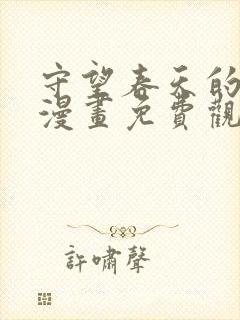 守望春天的
漫畫免費觀
許嘯聲